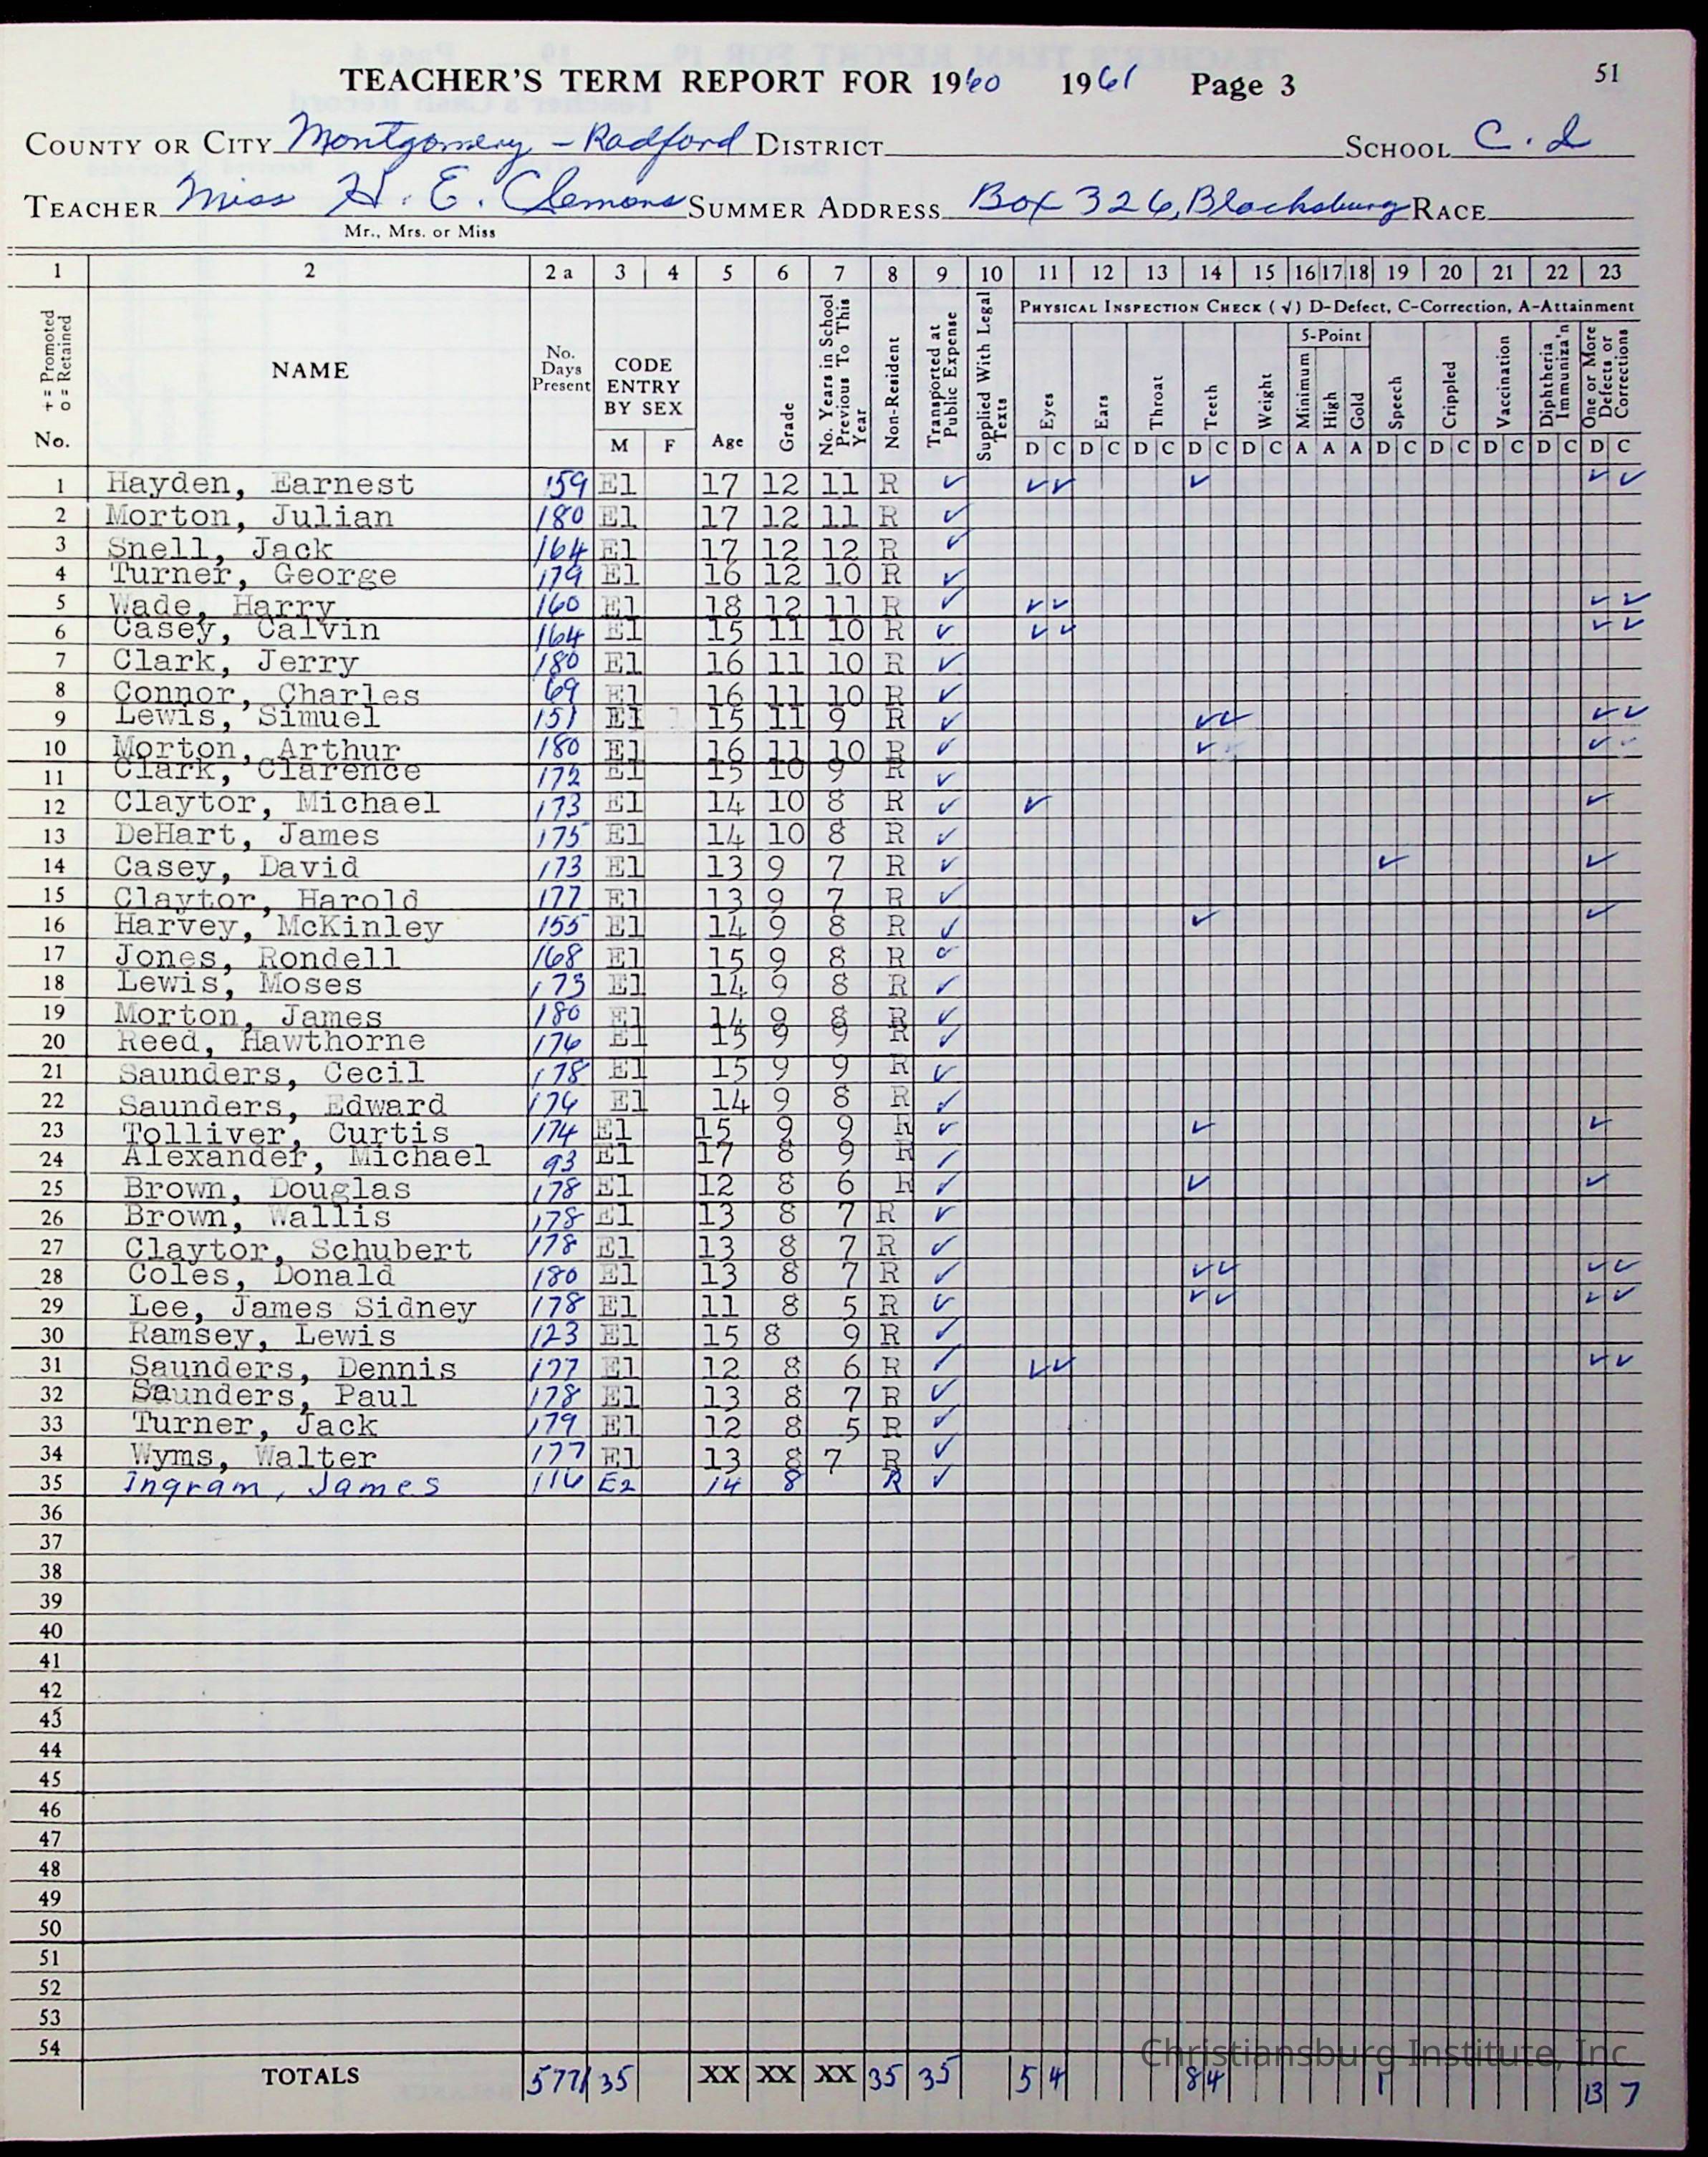 51
TEACHER'S TERM REPORT FOR 1960 1961 Page 3
COUNTY OR CITY Montgomery - Radford DISTRICT SCHOOL C. I
TEACHER Miss H. E. Clemons SUMMER ADDRESS Box 326, Blacksburg RACE
Mr., Mrs. or Miss
1 2 2 a 3 4 5 6 7 8 9 10 11 12 13 14 15 16 17 18 19 20 21 22 23
+ = Promoted o = Retained No. NAME No. Days Present CODE ENTRY BY SEX M F Age Grade No. Years in School Previous To This Year Non-Resident Transported at Public Expense Supplied With Legal Texts
PHYSICAL INSPECTION CHECK (√) D-Defect, C-Correction, A-Attainment
5-Point
Eyes Ears Throat Teeth Weight Minimum High Gold Speech Crippled Vaccination Diphtheria Immuniza'n One or More Defects or Corrections
D C D C D C D C D C A A A D C D C D C D C D C
1 Hayden, Earnest 159 El 17 12 11 R ✓ ✓ ✓ ✓ ✓ ✓
2 Morton, Julian 180 El 17 12 11 R ✓
3 Snell, Jack 164 El 17 12 12 R ✓
4 Turner, George 179 El 16 12 10 R ✓
5 Wade, Harry 160 El 18 12 11 R ✓ ✓ ✓ ✓ ✓
6 Casey, Calvin 164 El 15 11 10 R ✓ ✓ ✓ ✓ ✓
7 Clark, Jerry 180 El 16 11 10 R ✓
8 Connor, Charles 69 El 16 11 10 R ✓
9 Lewis, Simuel 151 El 15 11 9 R ✓ ✓ ✓ ✓ ✓
10 Morton, Arthur 180 El 16 11 10 R ✓ ✓ ✓
11 Clark, Clarence 172 El 15 10 9 R ✓
12 Claytor, Michael 173 El 14 10 8 R ✓ ✓ ✓
13 DeHart, James 175 El 14 10 8 R ✓
14 Casey, David 173 El 13 9 7 R ✓ ✓ ✓
15 Claytor, Harold 177 El 13 9 7 R ✓
16 Harvey, McKinley 155 El 14 9 8 R ✓ ✓ ✓
17 Jones, Rondell 168 El 15 9 8 R ✓
18 Lewis, Moses 173 El 14 9 8 R ✓
19 Morton, James 180 El 14 9 8 R ✓
20 Reed, Hawthorne 176 El 15 9 9 R ✓
21 Saunders, Cecil 178 El 15 9 9 R ✓
22 Saunders, Edward 176 El 14 9 8 R ✓
23 Tolliver, Curtis 174 El 15 9 9 R ✓ ✓ ✓
24 Alexander, Michael 93 El 17 8 9 R ✓
25 Brown, Douglas 178 El 12 8 6 R ✓ ✓ ✓
26 Brown, Wallis 178 El 13 8 7 R ✓
27 Claytor, Schubert 178 El 13 8 7 R ✓
28 Coles, Donald 180 El 13 8 7 R ✓ ✓ ✓ ✓ ✓
29 Lee, James Sidney 178 El 11 8 5 R ✓ ✓ ✓ ✓ ✓
30 Ramsey, Lewis 123 El 15 8 9 R ✓
31 Saunders, Dennis 177 El 12 8 6 R ✓ ✓ ✓ ✓ ✓
32 Saunders, Paul 178 El 13 8 7 R ✓
33 Turner, Jack 179 El 12 8 5 R ✓
34 Wyms, Walter 177 El 13 8 7 R ✓
35 Ingram, James 116 E2 14 8 R ✓
36
37
38
39
40
41
42
43
44
45
46
47
48
49
50
51
52
53
54
Christiansburg Institute, Inc
TOTALS 5771 35 XX XX XX 35 35 5 4 8 4 1 13 7